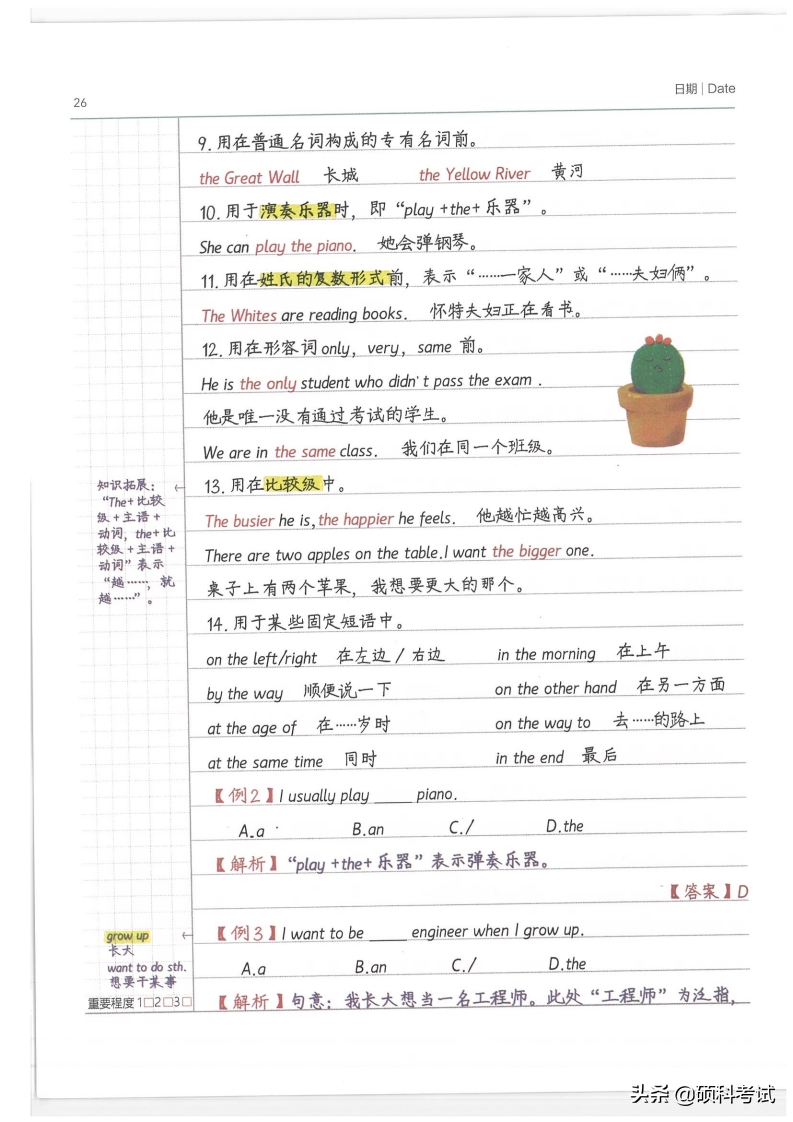 26
日期 | Date
9. 用在普通名词构成的专有名词前。
the Great Wall 长城 the Yellow River 黄河
10. 用于演奏乐器时，即“play +the+ 乐器”。
She can play the piano. 她会弹钢琴。
11. 用在姓氏的复数形式前，表示“……一家人”或“……夫妇俩”。
The Whites are reading books. 怀特夫妇正在看书。
12. 用在形容词 only，very，same 前。
He is the only student who didn't pass the exam .
他是唯一没有通过考试的学生。
We are in the same class. 我们在同一个班级。
13. 用在比较级中。
The busier he is, the happier he feels. 他越忙越高兴。
There are two apples on the table.I want the bigger one.
桌子上有两个苹果，我想要更大的那个。
14. 用于某些固定短语中。
on the left/right 在左边 / 右边 in the morning 在上午
by the way 顺便说一下 on the other hand 在另一方面
at the age of 在……岁时 on the way to 去……的路上
at the same time 同时 in the end 最后
【例2】I usually play ____ piano.
A.a B.an C./ D.the
【解析】“play +the+ 乐器”表示弹奏乐器。
【答案】D
【例3】I want to be ____ engineer when I grow up.
A.a B.an C./ D.the
【解析】句意：我长大想当一名工程师。此处“工程师”为泛指，
知识拓展：
“The+ 比较
级 + 主语 +
动词，the+ 比
较级 + 主语 +
动词”表示
“越……，就
越……”。
grow up
长大
want to do sth.
想要干某事
重要程度 1□2□3□
头条 @硕科考试